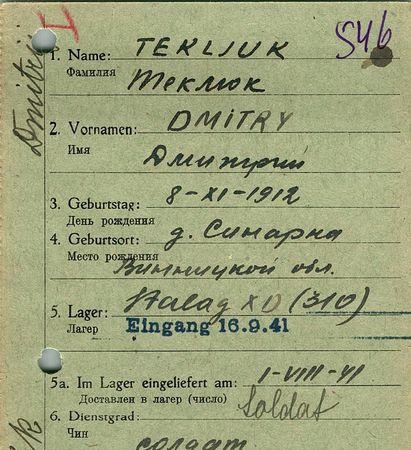 546
1. Name: TEKLJUK
Фамилия Теклюк
2. Vornamen: DMITRY
Имя Дмитрий
3. Geburtstag: 8-XI-1912
День рождения
4. Geburtsort: д. Синарна
Место рождения Винницкой обл.
5. Lager: Stalag XD (310)
Лагер Eingang 16.9.41
5a. Im Lager eingeliefert am: 1-VIII-41
Доставлен в лагер (число)
6. Dienstgrad: Soldat
Чин солдат
Dmitri